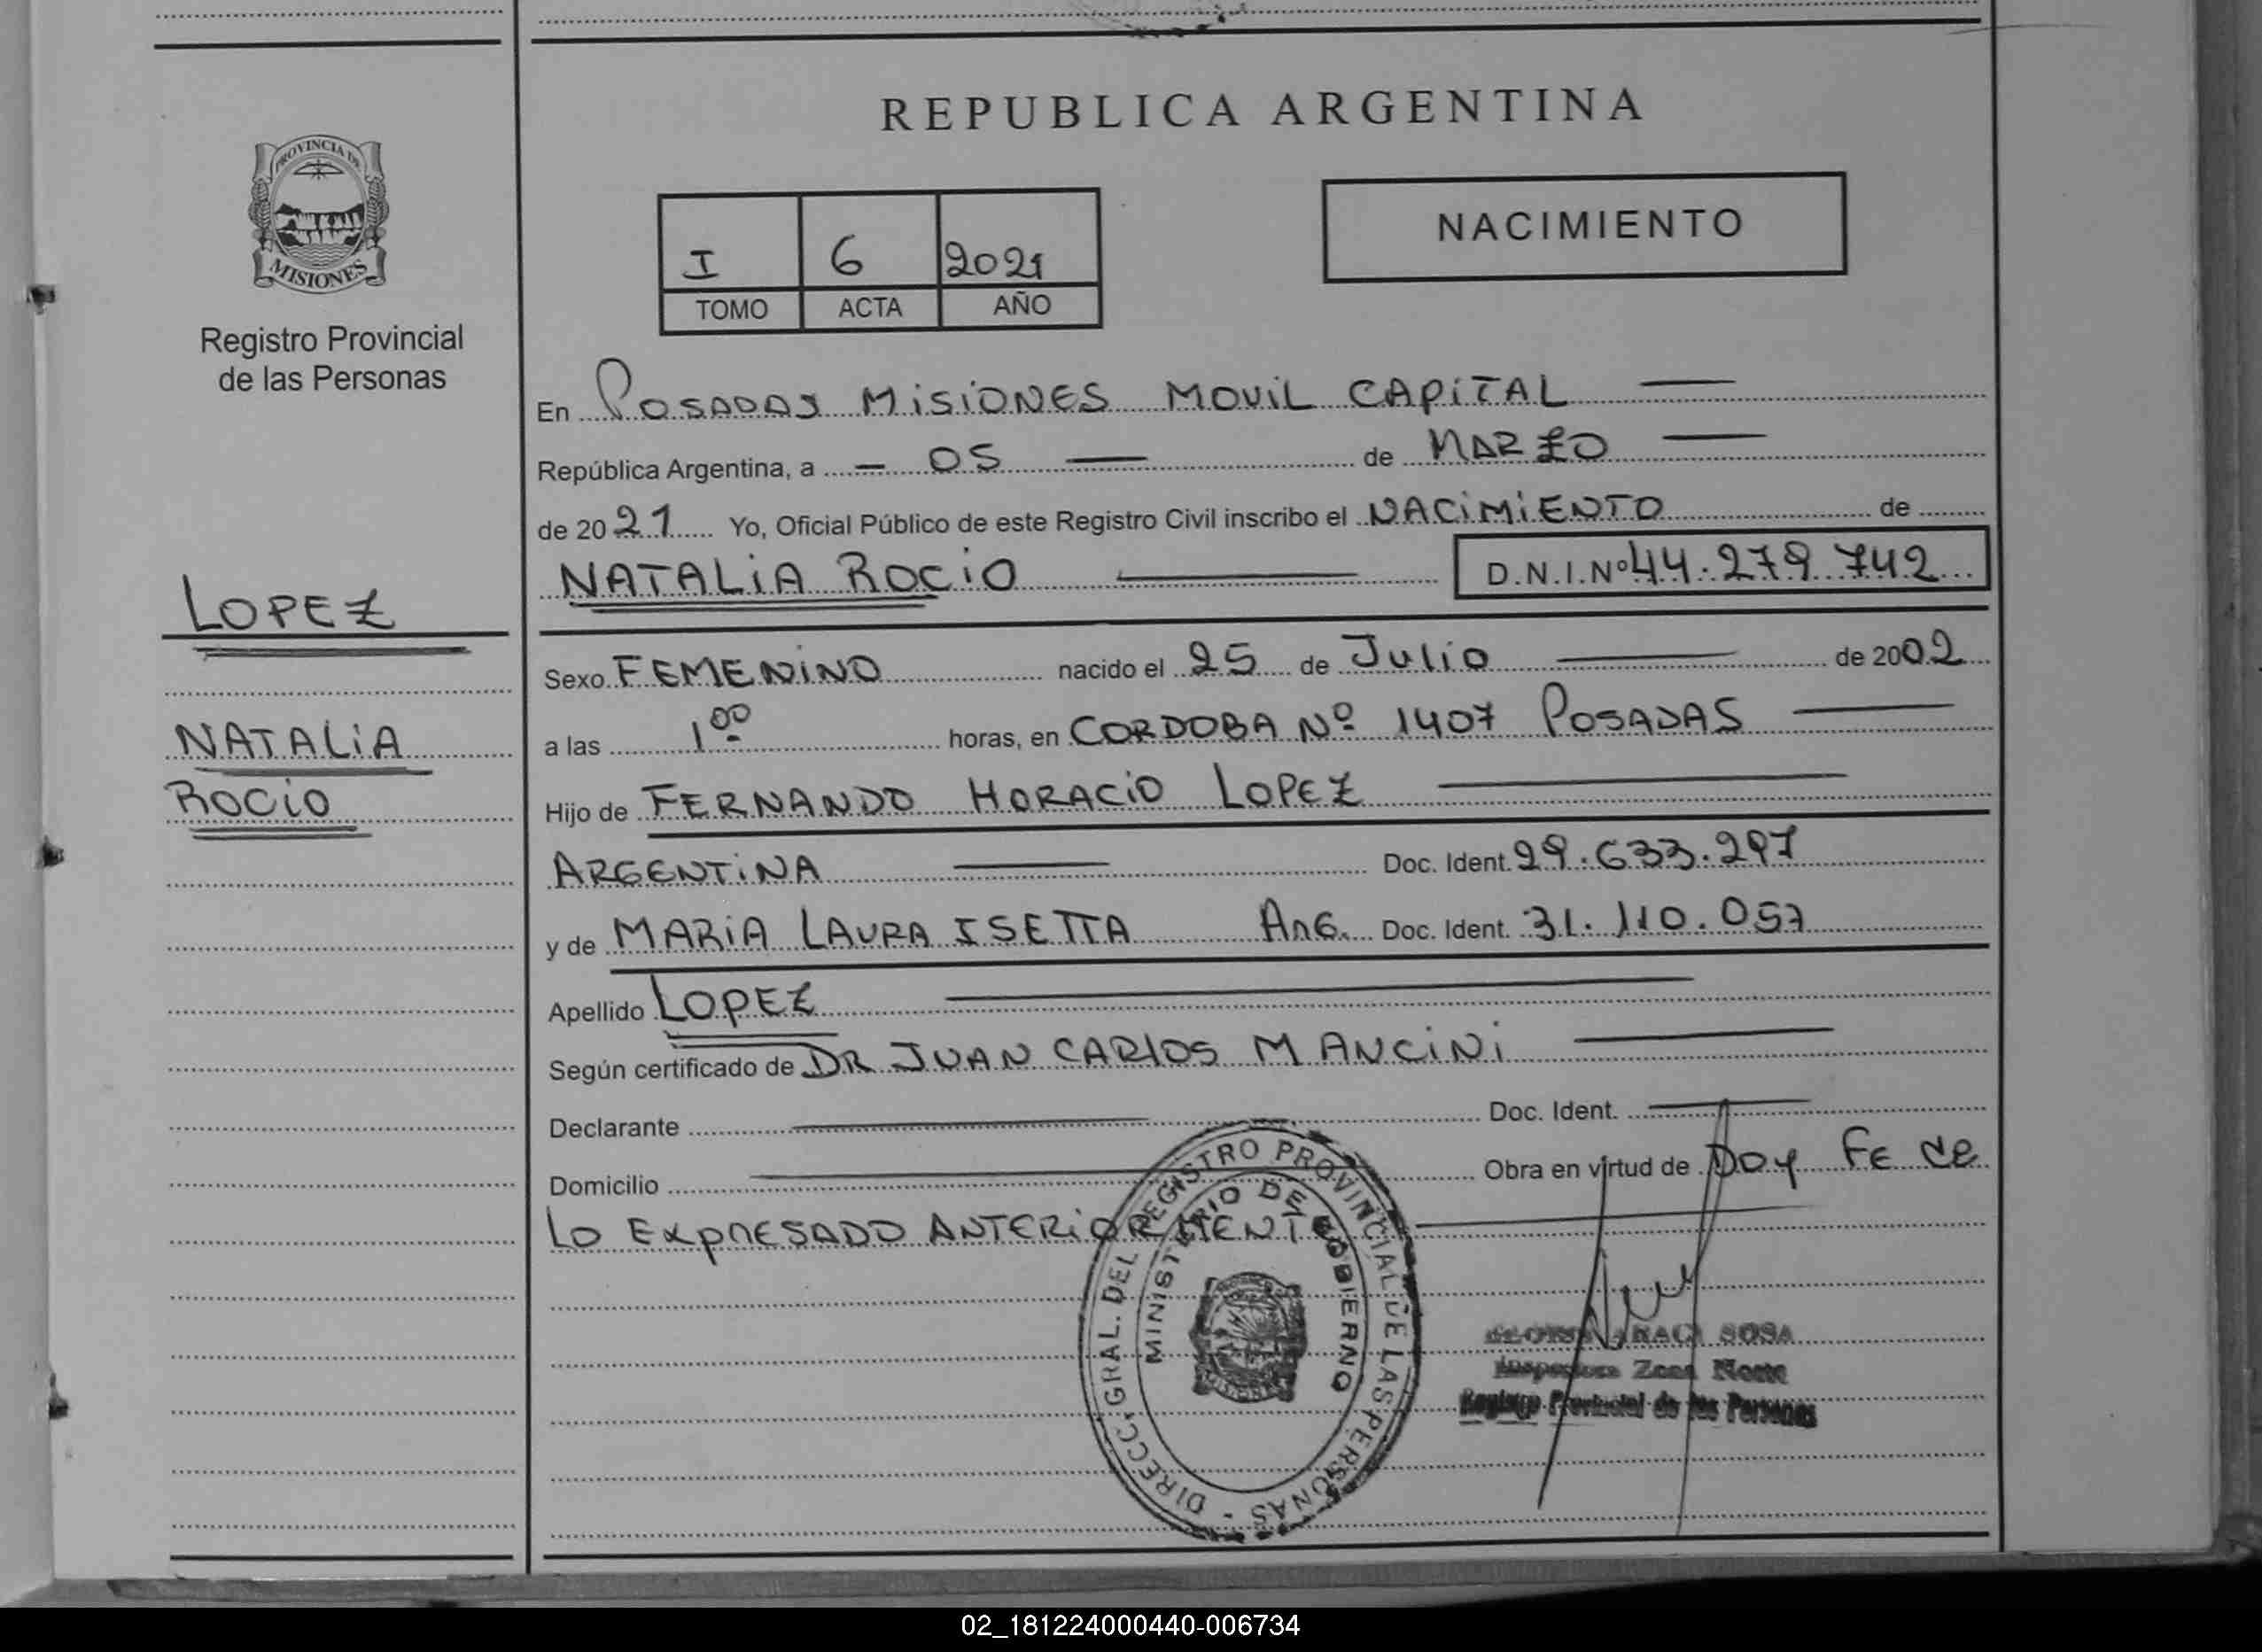 REPUBLICA ARGENTINA
PROVINCIA DE
MISIONES
Registro Provincial
de las Personas
NACIMIENTO
I 6 2021
TOMO ACTA AÑO
En POSADAS MISIONES MOVIL CAPITAL
República Argentina, a 05 de MARZO
de 2021 Yo, Oficial Público de este Registro Civil inscribo el NACIMIENTO de
NATALIA ROCIO D.N.I.Nº 44.279.742
LOPEZ
NATALIA
ROCIO
Sexo FEMENINO nacido el 25 de JULIO de 2002
a las 100 horas, en CORDOBA Nº 1407 POSADAS
Hijo de FERNANDO HORACIO LOPEZ
ARGENTINA Doc. Ident. 29.633.297
y de MARIA LAURA ISETTA ARG. Doc. Ident. 31.110.057
Apellido LOPEZ
Según certificado de DR JUAN CARLOS MANCINI
Declarante Doc. Ident.
Domicilio Obra en virtud de DOY FE de
LO EXPRESADO ANTERIORMENTE
DIRECC. GRAL. DEL REGISTRO PROVINCIAL DE LAS PERSONAS -
MINISTERIO DE GOBIERNO
SOSA
Inspectora Zona Norte
Registro Provincial de las Personas
02_181224000440-006734